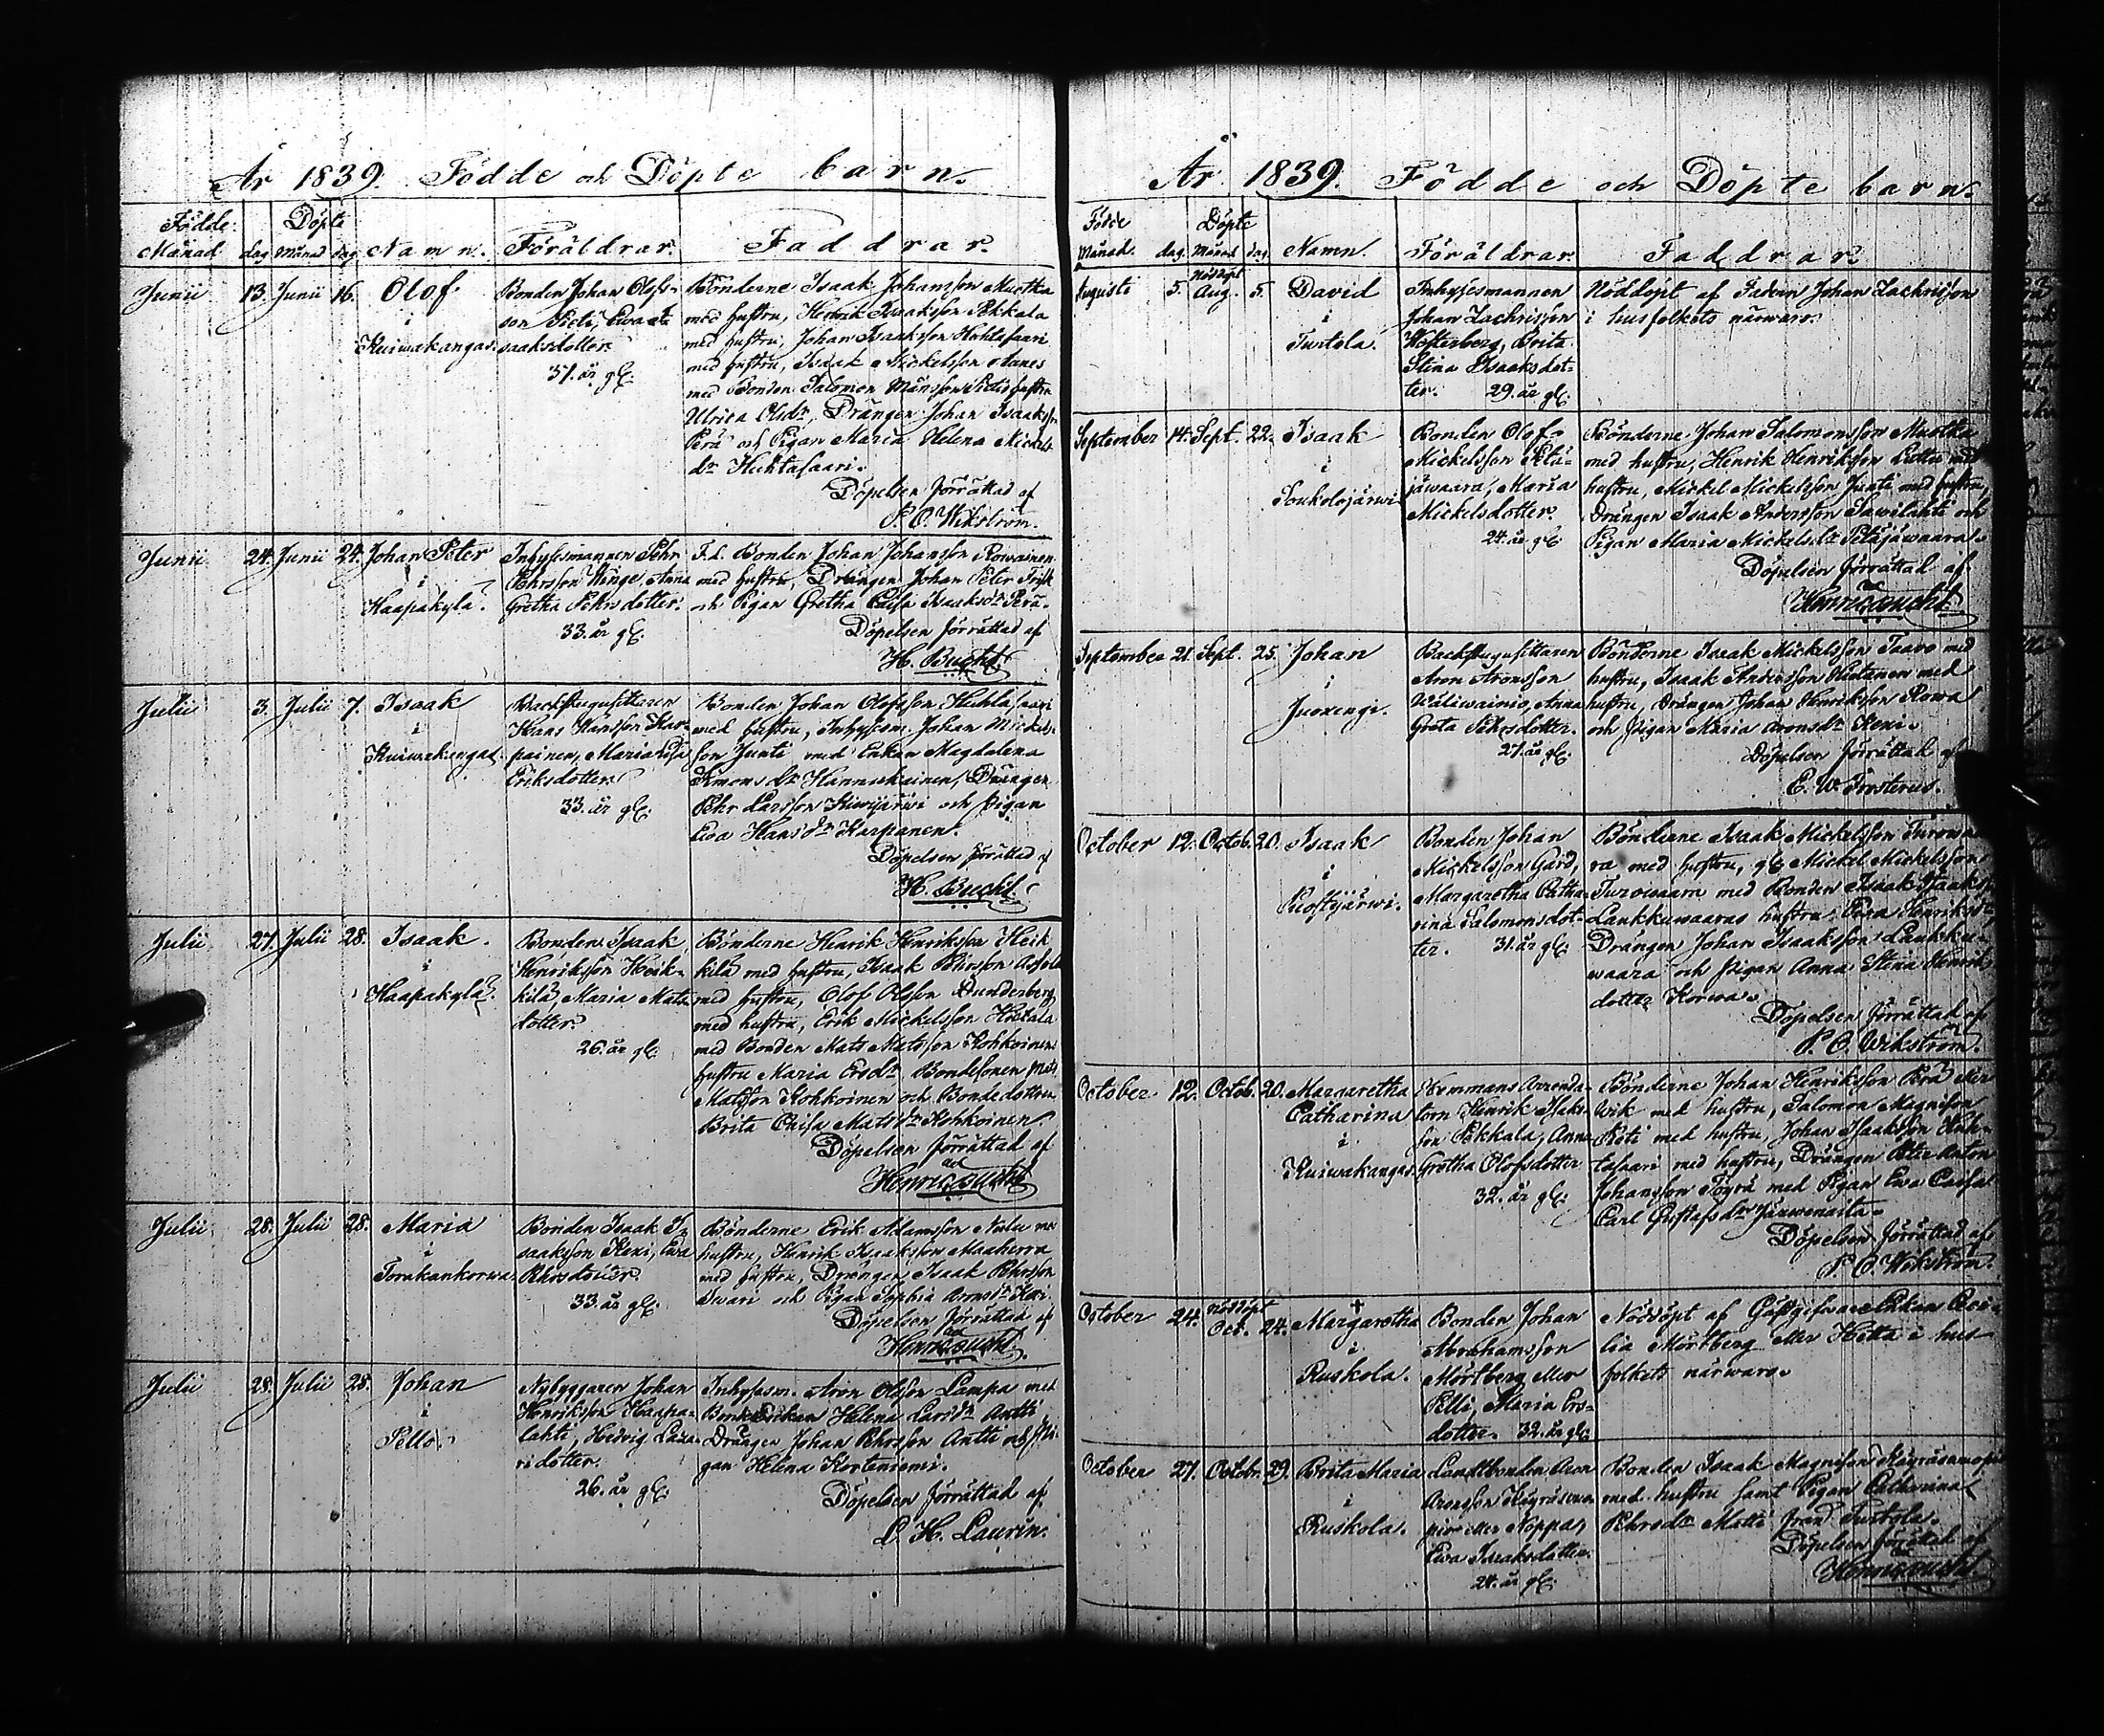 År 1839. Födde och Döpte barn.
Födde Döpte
Månad dag Månad dag Namn. Föräldrar. Faddrar.
Junii 13. Junii 16. Olof
i
Kuiwakangas.
Bonden Johan Olofs-
son Pieti, Ewa
saaksdotter.
37. år gl.
Bönderne Isaak Johansson Mustka
med hustru, Henrik Isaaksson Pekkala
med hustru, Johan Isaaksson Huhtasaari
med hustru, Isaak Mickelsson
med Bonden Salomon Månsson Pietis hustru
Ulrica Olsdr, Drängen Johan Isaaksson
Perä och Pigan Maria Helena Mickels
dr Huhtasaari.
Döpelsen förrättad af
P. O. Wikström.
Junii 24. Junii 24. Johan Peter
i
Haapakylä.
Inhysesmannen Pehr
Pehrsson Winge, Anna
Gretha Pehrsdotter.
33. år gl.
F.d. Bonden Johan Johansson Rowainen
med hustru, Drängen Johan Peter Frisk
och Pigan Gretha Caisa Isaaksdr Perä.
Döpelsen förrättad af
H. Bucht.
Julii 3. Julii 7. Isaak
i
Kuiwakangas.
Backstugusittaren
Hans Hansson Kar-
painen, Maria Lisa
Eriksdotter.
33. år gl.
Bonden Johan Olofsson Huhtasaari
med hustru, Inhysesm. Johan Mickels-
son Junti med Enkan Magdalena
Simonsdr Hannukainen, Drängen
Pehr Larsson Kiwijärwi och pigan
Ewa Hansdr Karpanen.
Döpelsen förrättad af
H. Bucht.
Julii 27. Julii 28. Isaak
i
Haapakylä.
Bonden Isaak
Henriksson Heik-
kilä, Maria Mats-
dotter.
26. år gl.
Bönderne Henrik Henriksson Heik
kilä med hustru, Isaak Pehrsson
med hustru, Olof Olsson Dunderberg
med hustru, Erik Mickelsson
med Bonden Mats Matsson Kohkoinens
hustru Maria Ersdr, Bondesonen Mats
Matsson Kohkoinen och Bondedottren
Brita Caisa Matsdr Kohkoinen.
Döpelsen förrättad af
Henric Bucht
Julii 28. Julii 28. Maria
i
Torakankorwa
Bonden Isaak I-
saaksson Kexi, Ewa
Pehrsdotter.
33. år gl.
Bönderne Erik Adamsson Niela med
hustru, Henrik Isaaksson Maaherra
med hustru, Drängen Isaak Pehrsson
och Pigan Sophia Aronsdr Kexi.
Döpelsen förrättad af
Henric Bucht.
Julii 28. Julii 28. Johan
i
Pello.
Nybyggaren Johan
Henriksson Haapa-
lahti, Hedvig Laza-
ridotter.
26. år gl.
Inhysesm. Aron Olsson Lampa med
Helena Larsdr Antti
Drängen Johan Pehrsson Antti och Pi-
gan Helena Korteniemi.
Döpelsen förrättad af
L. H. Laurin.
År 1839. Födde och Döpte barn.
Födde Döpte
Månad. dag. Månad dag. Namn. Föräldrar. Faddrar.
nöddöpt
Augusti 5. Aug. 5. David
i
Turtola.
Inhysesmannen
Johan Zachrisson
Westerberg, Brita
Stina Isaaksdot-
ter. 29. år gl.
Nöddöpt af Fadern Johan Zachrisson
i husfolkets närwaro.
September 14. Sept. 22. Isaak
i
Soukolojärwi
Bonden Olof
Mickelsson Petä-
jäwaara, Maria
Mickelsdotter.
24. år gl.
Bönderne Johan Salomonsson Mustka
med hustru, Henrik Henriksson med
hustru, Mickel Mickelsson Junti med hustru,
Drängen Isaak Andersson Sawilahti och
Pigan Maria Mickelsdr Petäjäwaara.
Döpelsen förrättad af
Henric Bucht.
September 21. Sept. 25. Johan
i
Juoxengi.
Backstugusittaren
Aron Aronsson
Wäliwainio, Anna
Greta Pehrsdotter.
27. år gl.
Bönderne Isaak Mickelsson Taavo med
hustru, Isaak Andersson Hietanen med
hustru, Drängen Johan Henriksson Rowa
och Pigan Maria Aronsdr Kexi.
Döpelsen förrättad af
E. W. Forsterus.
October 12. Octob. 20. Isaak
i
Ruostijärwi.
Bonden Johan
Mickelsson Gård,
Margaretha Catha-
rina Salomonsdot-
ter. 31. år gl.
Bönderne Isaak Mickelsson Turowaa
ra med hustru, gl. Mickel Mickelsson
Turowaara med Bonden Isaak Isaakss.
Laukkuwaaras hustru Ewa Henriksdr
Drängen Johan Isaaksson Laukku-
waara och Pigan Anna Stina Henriks
dotter Korwa.
Döpelsen förrättad af
P. O. Wikström.
October 12. Octob. 20. Margaretha
Catharina
i
Kuiwakangas.
Hemmans Arrenda-
torn Henrik Isaks-
son Pekkala, Anna
Gretha Olofsdotter
32. år gl.
Bönderne Johan Henriksson Perä eller
Wik med hustru, Salomon Magnisson
Pieti med hustru, Johan Isaaksson Huh-
tasaari med hustru, Drängen Peter Anton
Johansson Töyrä med Pigan Ewa Caisa
Carl Gustafsdr
Döpelsen förrättad af
P. O. Wikström.
nöddöpt †
October 24. Oct. 24. Margaretha
i
Ruskola.
Bonden Johan
Abrahamsson
Mörtberg eller
Pelli, Maria Ers-
dotter. 32. år gl.
Nöddöpt af Gästgifware Enkan Ceci-
lia Mörtberg eller Hietta i hus-
folkets närwaro.
October 27. Octobr. 29. Brita Maria
i
Ruskola.
Landtbonden Aron
Aronsson
eller Noppa,
Ewa Isaaksdotter.
24. år gl.
Bonden Isaak Magnisson
med hustru samt Pigan Catharina
Pehrsdr Matti från Turtola.
Döpelsen förrättad af
Henric Bucht.